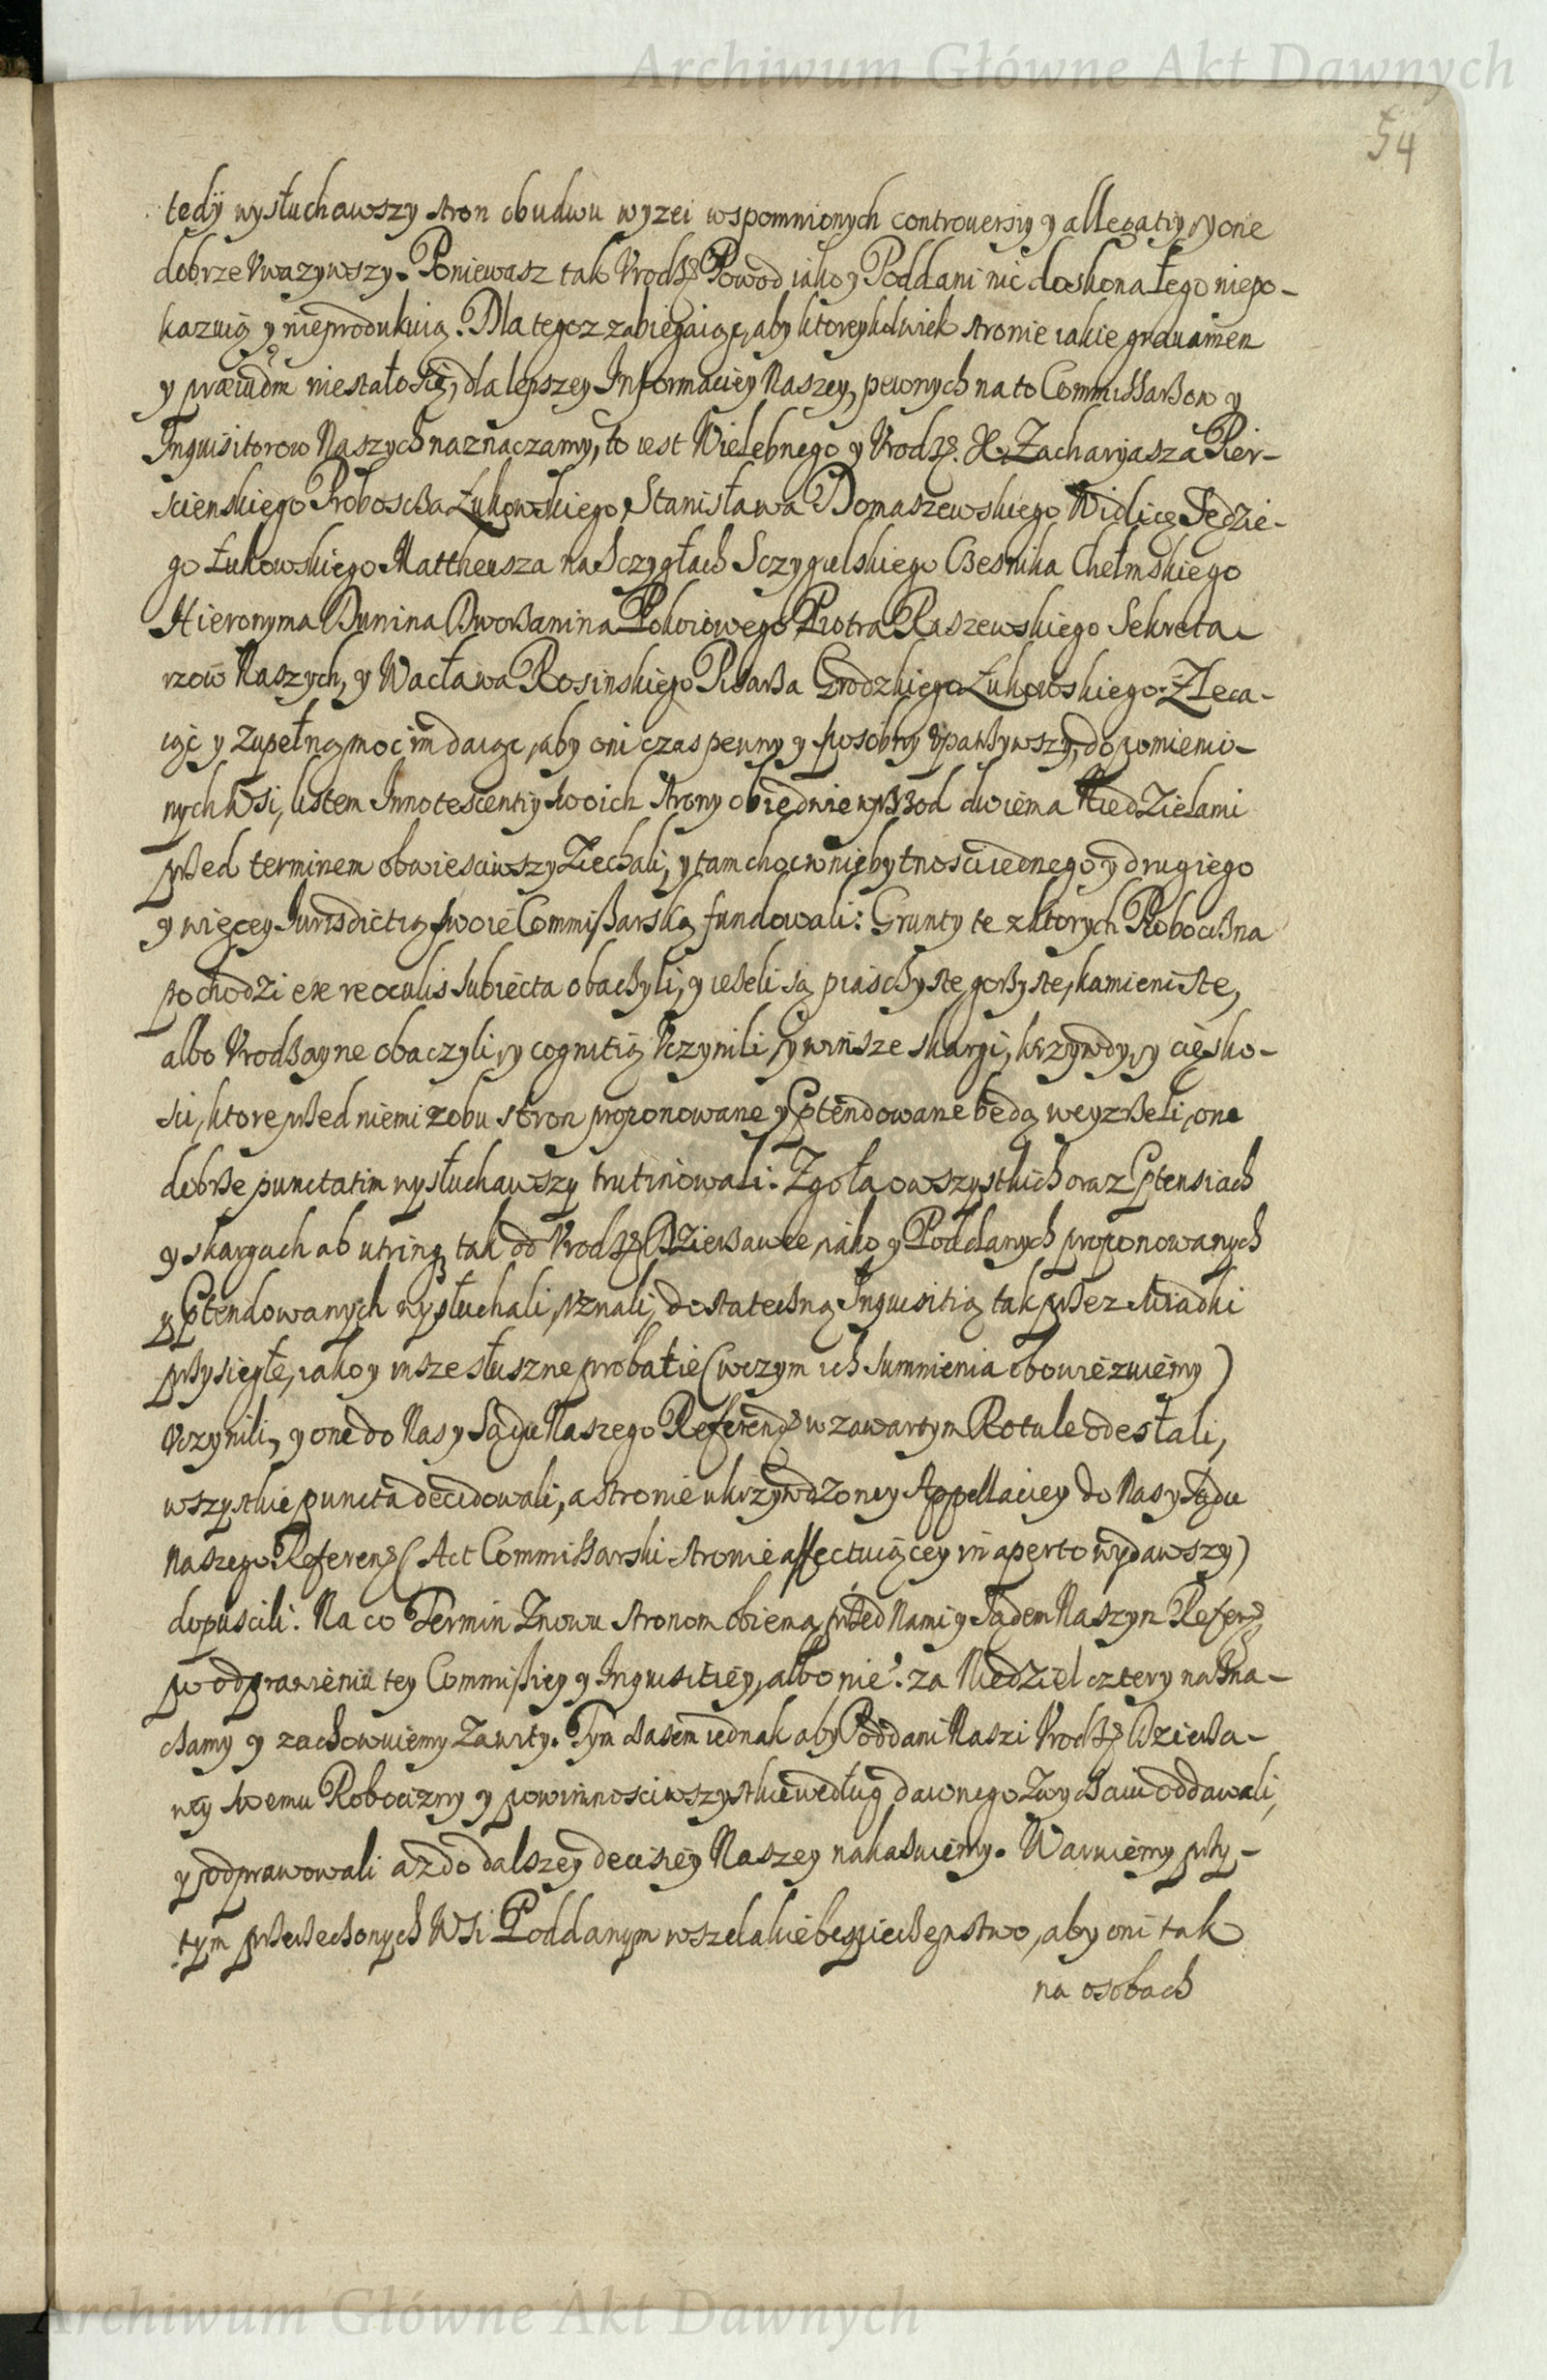 Archiwum Główne Akt Dawnych
54
tedÿ wysłuchawszy stron obudwu wyzei wspomnionych controuersiy y allegatiy, y one
dobrze Vwazywszy. Poniewasz tak Vrodz. Powod iako y Poddani nic doskonałego niepo-
kazuią y nieprodukuią. Dla tegoz zabiegaiąc, aby ktoreykolwiek stronie iakie grauamen
y præiudm niestało się, dla lepszey Informaciey Naszey, pewnych na to Commissarzow y
Inquisitorow Naszych naznaczamy, to iest Wielebnego y Vrodz. X. Zacharyasza Pier-
scienskiego Proboscza Łukowskiego, Stanisława Domaszewskiego Widlicę Sędzie-
go Łukowskiego Mattheusza na Sczygłach Sczygielskiego Czesnika Chełmskiego
Hieronyma Dunina Dworzanina Pokoiowego Piotra Raszewskiego Sekreta-
rzow Naszych, y Wacława Rosinskiego Pisarza Grodzkiego Łukowskiego. Zleca-
iąc y zupełną moc im daiąc, aby oni czas pewny y sposobny vpatrzywszy, do pomienio-
nych Wsi, listem Innotescentiy swoich strony obiedwie wprzod dwiema Niedzielami
przed terminem obwiesciwszy Ziechali, y tam choc w niebytnosci iednego y drugiego
y więcey Iurisdictią swoię Commissarską fundowali: Grunty te z ktorych Roboczizna
pochodzi ex re oculis subiecta obaczyli, y iezeli są piaschyste, gorzyste, kamieniste,
albo Vrodzayne obaczyli, y cognitią Vczynili, y winsze skargi, krzywdy, y cięsko-
sci, ktore przed niemi z obu stron proponowane y Ptendowane będą weyzrzeli, one
dobrze punctatim wysłuchawszy trutinowali. Zgoła o wszystkich oraz Ptensiach
y skargach ab utrinq tak od Vrodz. Dzierzawce, iako y Poddanych proponowanych
y Ptendowanych wysłuchali, Vznali, dostateczną Inquisitią tak przez swiadki
przysięgłe, iako y insze słuszne probatie (w czym ich sumnienia obowięzuiemy)
Vczynili, y one do Nas y Sądu Naszego Referend. w zawartym Rotule odesłali,
wszystkie puncta decidowali, a stronie ukrzywdzoney Appellaciey do Nas y Sądu
Naszego Referen. (Act Commissarski stronie affectuiącey in aperto wydawszy)
dopuscili. Na co Termin Znowu stronom obiema przed Nami y Sądem Naszym Refer.
po odprawieniu tey Commissiey y Inquisitiey, albo nie: za Niedziel cztery nazna-
czamy y zachowuiemy Zawity. Tym czasem iednak aby Poddani Naszi Vrodz. Dzierza-
wcy swemu Robocizny y powinnosci wszystkie według dawnego Zwyczaiu oddawali,
y odprawowali az do dalszey decisiey Naszey nakazuiemy. Waruiemy przy-
tym przerzeczonych Wsi Poddanym wszelakie bespieczenstwo, aby oni tak
na osobach
Archiwum Główne Akt Dawnych